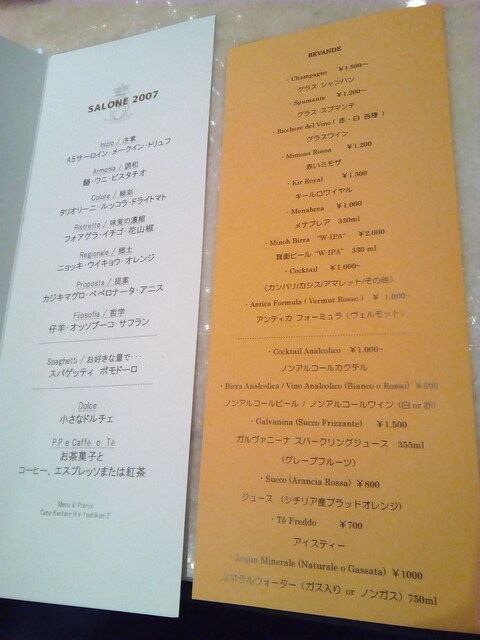 SALONE 2007
Inizio / 序章
A5サーロイン・メークイン・トリュフ
Armonia / 調和
鰆・ウニ・ピスタチオ
Colore / 精彩
タリオリーニ・ルッコラ・ドライトマト
Ristretto / 味覚の凝縮
フォアグラ・イチゴ・花山椒
Regionale / 郷土
ニョッキ・ウイキョウ・オレンジ
Proposta / 提案
カジキマグロ・ペペロナータ・アニス
Filosofia / 哲学
仔羊・オッソブーコ・サフラン
Spaghetti / お好きな量で・・・
スパゲッティ ポモドーロ
Dolce
小さなドルチェ
P.P e Caffè o Tè
お茶菓子と
コーヒー、エスプレッソまたは紅茶
Menu di Pranzo
BEVANDE
・Champagne ￥1,500~
グラス シャンパン
・Spumante ￥1,200~
グラス スプマンテ
・Bicchere del Vino ( 赤・白 各種 )
グラスワイン
・Mimosa Rossa ￥1,200
赤いミモザ
・Kir Royal ￥1,500
キールロワイヤル
・Menabrea ￥1,000
メナブレア 330ml
・Minoh Birra “W-IPA” ￥2,000
箕面ビール “W-IPA” 330 ml
・Cocktail ￥1,000~
（カンパリ/カシス/アマレット/その他）
・Antica Formula ( Vermut Rosso ) ￥ 1,000~
アンティカ フォーミュラ（ヴェルモット）
・Cocktail Analcolico ￥1,000~
ノンアルコールカクテル
・Birra Analcolica / Vino Analcolico (Bianco o Rosso) ￥800
ノンアルコールビール / ノンアルコールワイン（白 or 赤）
・Galvanina (Succo Frizzante) ￥1,500
ガルヴァニーナ スパークリングジュース 355ml
（グレープフルーツ）
・Succo (Arancia Rossa) ￥800
ジュース （シチリア産ブラッドオレンジ）
・Tè Freddo ￥700
アイスティー
Minerale (Naturale o Gassata) ￥1000
ミネラルウォーター（ガス入り or ノンガス）750ml